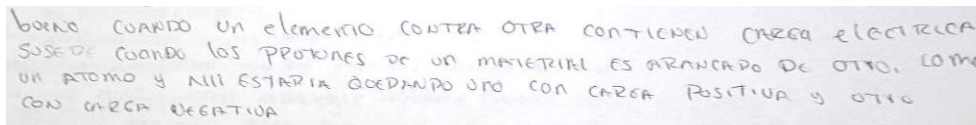 bueno CUANDO un elemento CONTRA OTRA CONTIENEN CARGA eleCTRICA
SUSEDE CUANDO los PROTONES DE un MATERIAL ES ARANCADO DE OTRO. COMO
UN ATOMO y Alli ESTARIA QUEDANDO uno con CARGA POSITIVA y OTRO
CON CARGA NEGATIVA